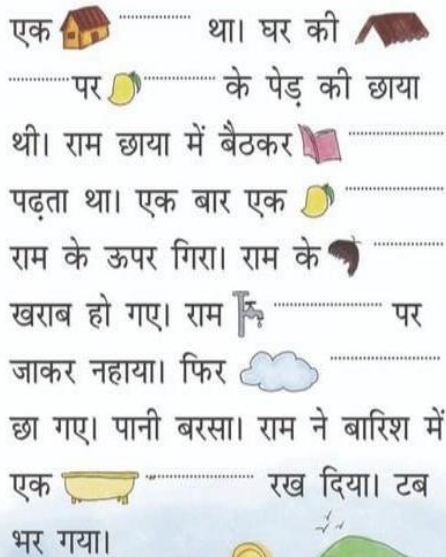 एक ................ था। घर की
............ पर ............ के पेड़ की छाया
थी। राम छाया में बैठकर ................
पढ़ता था। एक बार एक ................
राम के ऊपर गिरा। राम के ............
खराब हो गए। राम ................ पर
जाकर नहाया। फिर ................
छा गए। पानी बरसा। राम ने बारिश में
एक ................ रख दिया। टब
भर गया।